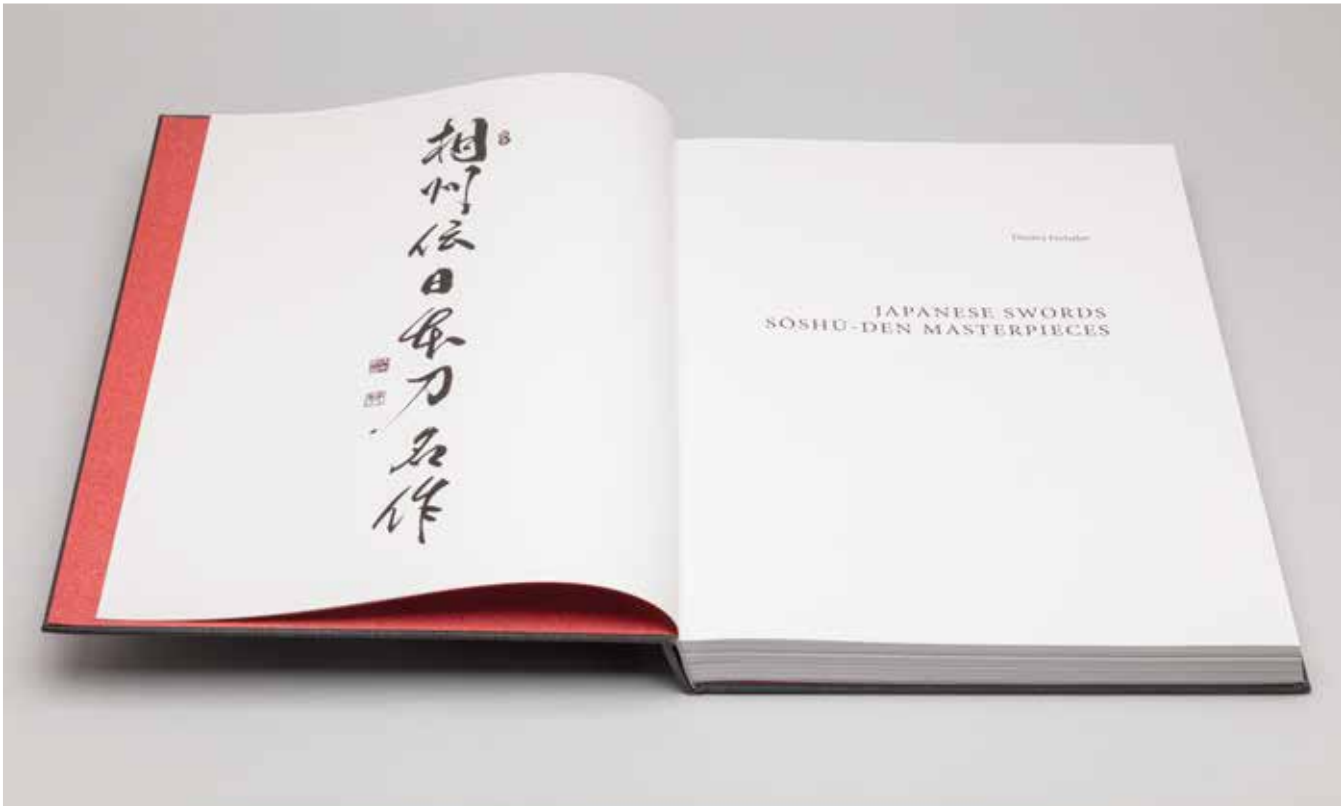 相州伝日本刀名作
JAPANESE SWORDS
SŌSHŪ-DEN MASTERPIECES